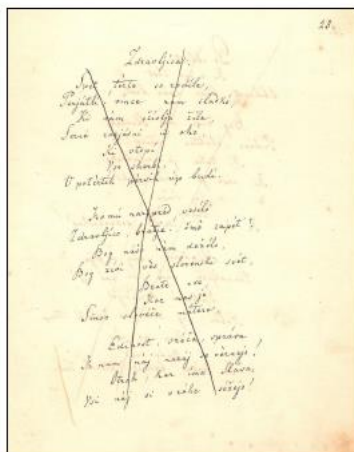 28.
Zdravljica.
Spet terte so rodile,
Perjatli, vince nam sladkó,
Ki nam oživlja žile,
Sercé razjasni in oko
Ki otopi
Vse skerbi
V potertih persih up budi.
Komú narpred, veselo
Zdravljico, bratje, čmò zapét'?
Bog našo nam deželo,
Bog živi vès slovenski svèt,
Brate vse
Kar nas je
Sinov slovéče matere.
Edinost, sreča, sprava
K nam naj nazaj se vernejo!
Otrók, kar ima Slava,
Vsi naj si v róke sežejo!